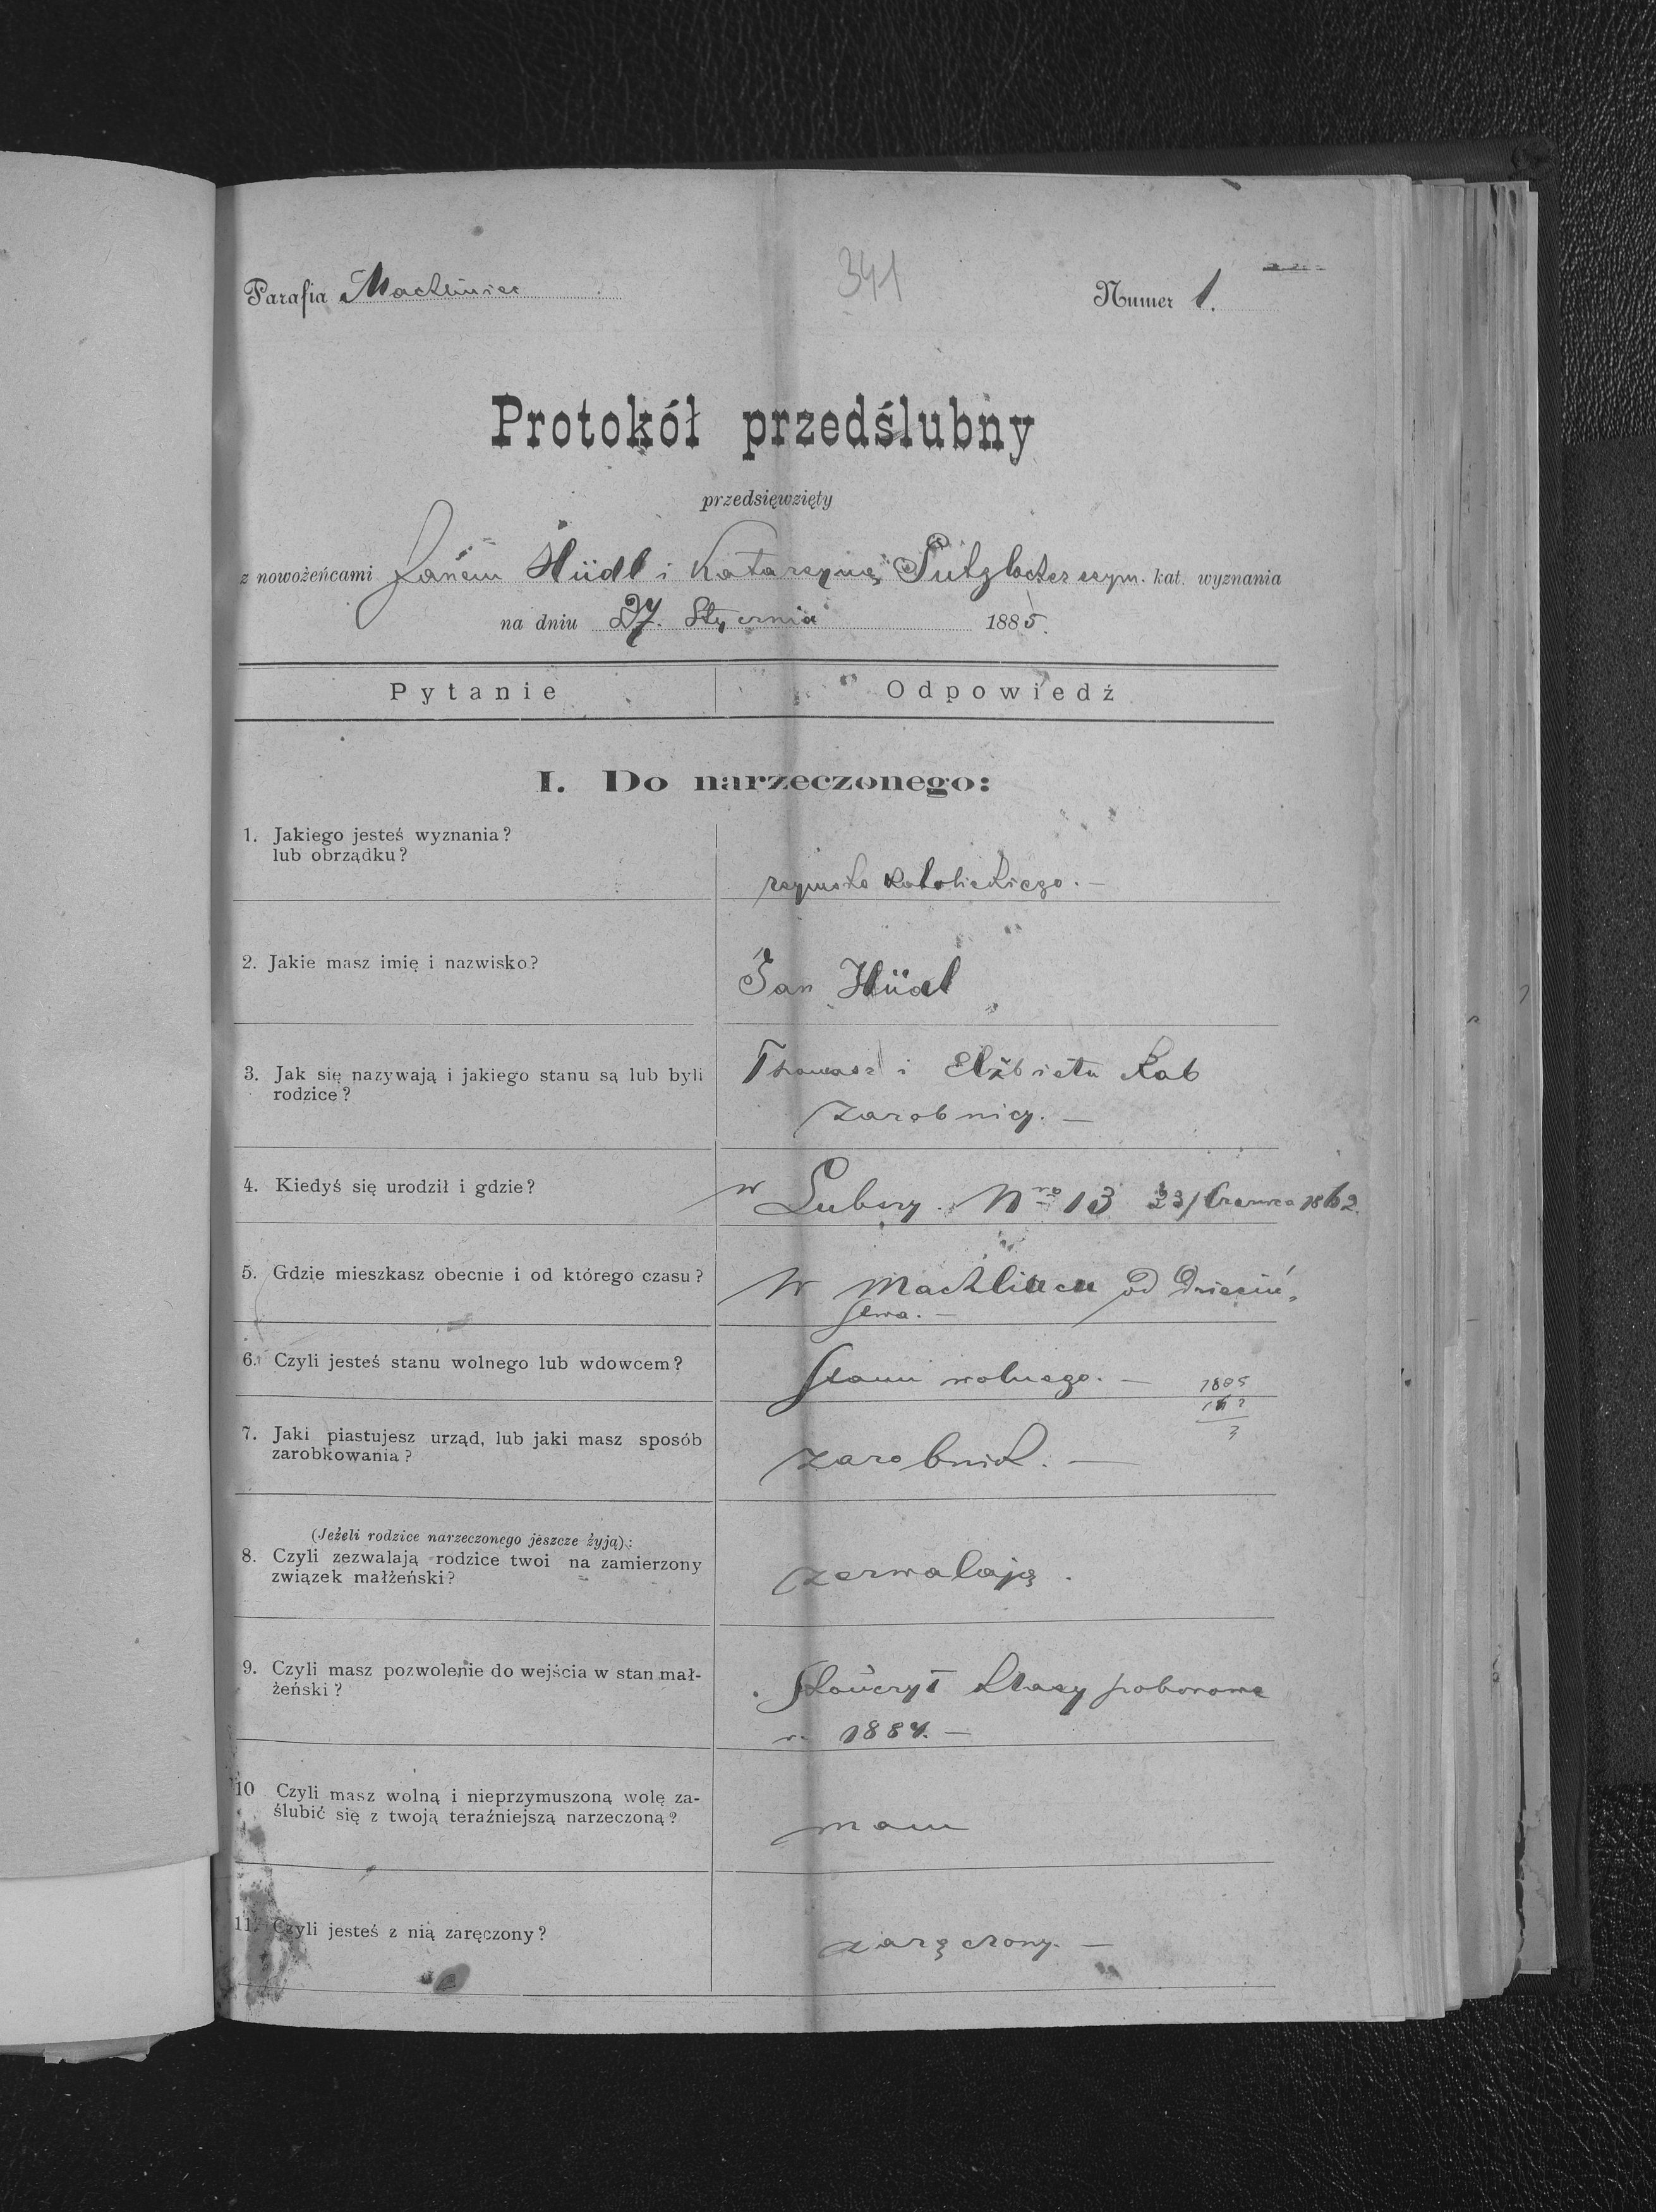 Parafia Machliniec 341 Numer 1.
Protokół przedślubny
przedsięwzięty
z nowożeńcami Janem Hüdl i Katarzyną rzym. kat. wyznania
na dniu 27. Stycznia 1885.
Pytanie Odpowiedź
I. Do narzeczonego:
1. Jakiego jesteś wyznania?
lub obrządku?
rzymsko katolickiego. —
2. Jakie masz imię i nazwisko?
Jan Hüdl
3. Jak się nazywają i jakiego stanu są lub byli
rodzice?
i Elżbieta Kab
zarobnicy. —
4. Kiedyś się urodził i gdzie?
w Nro 13 23/Czerwca 1862.
5. Gdzie mieszkasz obecnie i od którego czasu?
W Machlińcu od dzieciń-
stwa. —
6. Czyli jesteś stanu wolnego lub wdowcem?
Stanu wolnego. —
1885
7. Jaki piastujesz urząd, lub jaki masz sposób
zarobkowania?
zarobnik. —
(Jeżeli rodzice narzeczonego jeszcze żyją):
8. Czyli zezwalają rodzice twoi na zamierzony
związek małżeński?
zezwalają.
9. Czyli masz pozwolenie do wejścia w stan mał-
żeński?
Skończył klasy poborowe
r. 1884. —
10 Czyli masz wolną i nieprzymuszoną wolę za-
ślubić się z twoją teraźniejszą narzeczoną?
mam
11. Czyli jesteś z nią zaręczony?
zaręczony. —